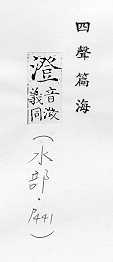 四聲篇海
澄
音澂
義同
(水部·441)